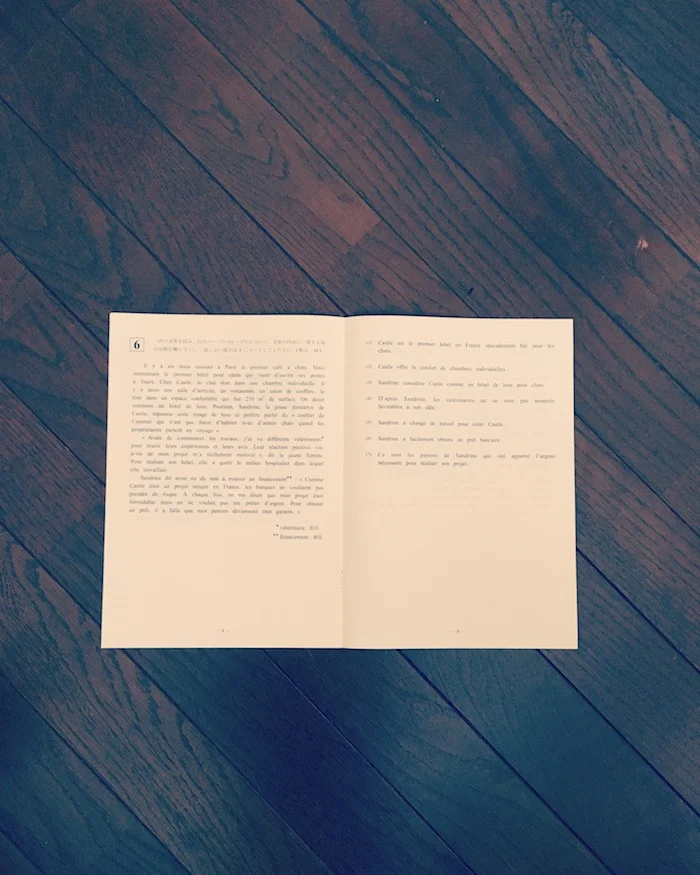 6
Il y a six mois naissait à Paris le premier café à chats. Voici
maintenant le premier hôtel pour chats qui vient d'ouvrir ses portes
à Tours. Chez Castle, le chat dort dans une chambre individuelle. Il
y a aussi une salle d'activité, un restaurant, un salon de coiffure, le
tout dans un espace confortable qui fait 270 m² de surface. On dirait
vraiment un hôtel de luxe. Pourtant, Sandrine, la jeune directrice de
Castle, repousse cette image de luxe et préfère parler du « confort de
l'animal qui n'est pas forcé d'habiter avec d'autres chats quand les
propriétaires partent en voyage ».
« Avant de commencer les travaux, j'ai vu différents vétérinaires*
pour réunir leurs expériences et leurs avis. Leur réaction positive
de mon projet m'a réellement motivée », dit la jeune femme.
Pour réaliser son hôtel, elle a quitté le milieu hospitalier dans lequel
elle travaillait.
Sandrine dit avoir eu du mal à trouver un financement** : « Comme
Castle était un projet unique en France, les banques ne voulaient pas
prendre de risque. A chaque fois, on me disait que mon projet était
formidable mais on ne voulait pas me prêter d'argent. Pour obtenir
un prêt, il a fallu que mes parents deviennent mes garants. »
* vétérinaire :
** financement :
- 8 -
(1) Castle est le premier hôtel en France spécialement fait pour les
chats.
(2) Castle offre le confort de chambres individuelles.
(3) Sandrine considère Castle comme un hôtel de luxe pour chats.
(4) D'après Sandrine, les vétérinaires ne se sont pas montrés
favorables à son idée.
(5) Sandrine a changé de travail pour créer Castle.
(6) Sandrine a facilement obtenu un prêt bancaire.
(7) Ce sont les parents de Sandrine qui ont apporté l'argent
nécessaire pour réaliser son projet.
- 9 -